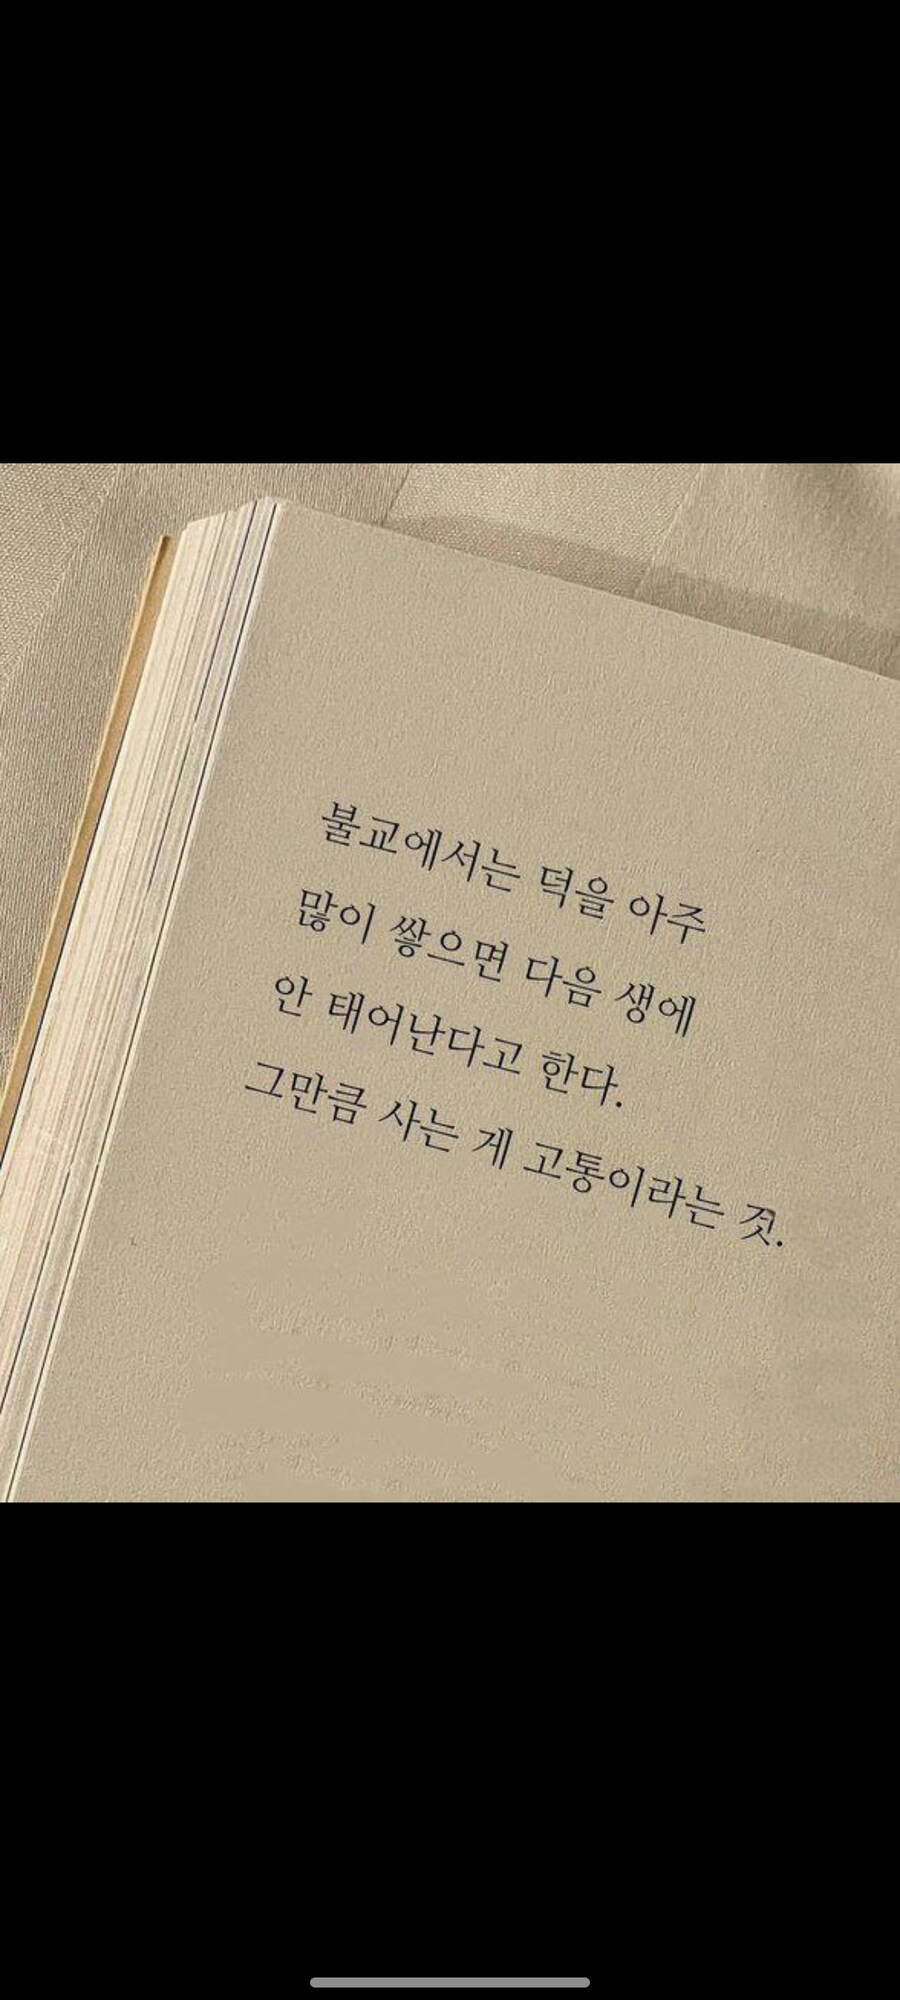 불교에서는 덕을 아주
많이 쌓으면 다음 생에
안 태어난다고 한다.
그만큼 사는 게 고통이라는 것.